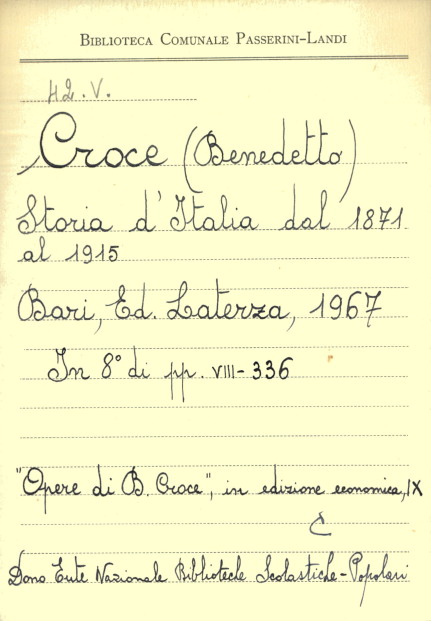 BIBLIOTECA COMUNALE PASSERINI-LANDI
H2. V.
Croce (Benedetto)
Storia d'Italia dal 1871
al 1915
Bari, Ed. Laterza, 1967
In 8° di pp. VIII-336
"Opere di B. Croce", in edizione economica, IX
C
Dono Ente Nazionale Biblioteche Scolastiche-Popolari